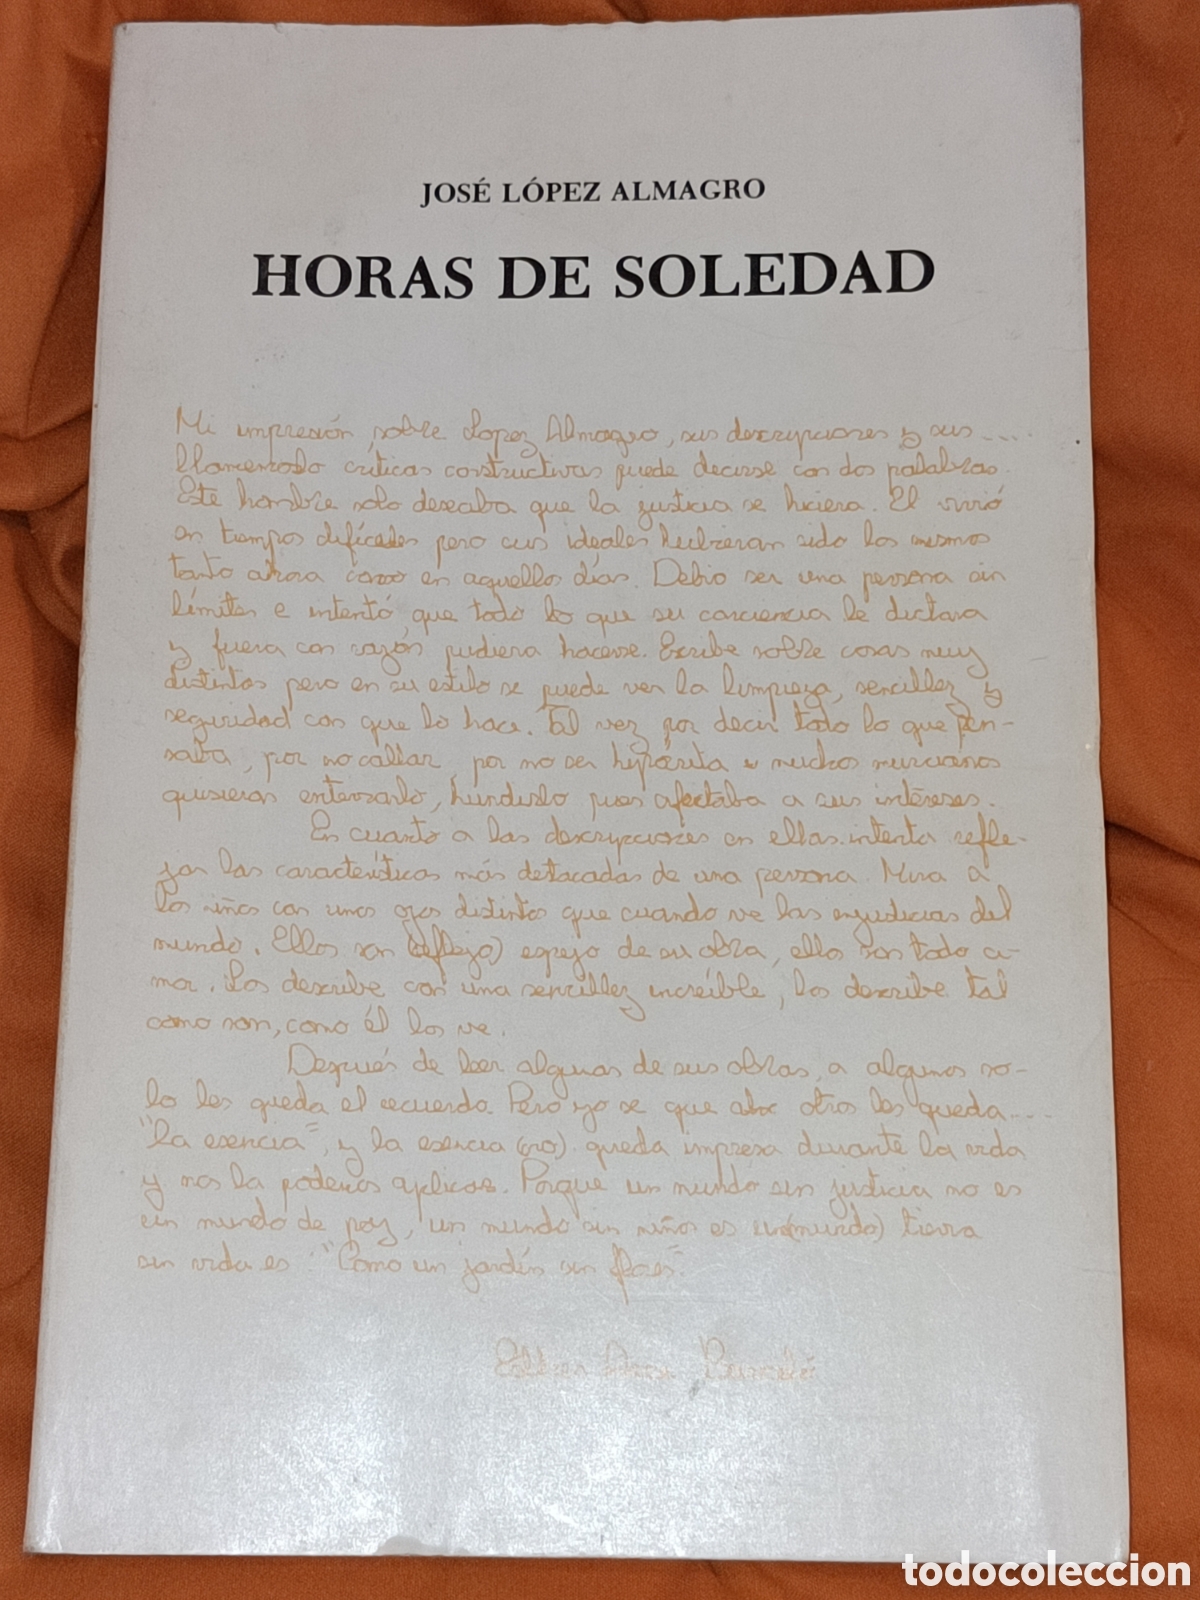 JOSÉ LÓPEZ ALMAGRO
HORAS DE SOLEDAD
Mi impresión sobre Lopez Almagro, sus descripciones y sus ....
llamemoslo críticas constructivas puede decirse con dos palabras.
Este hombre solo deseaba que la justicia se hiciera. El vivió
en tiempos difíciles pero sus ideales hubieran sido los mismos
tanto ahora como en aquellos días. Debio ser una persona sin
límites e intentó que todo lo que su conciencia le dictara
y fuera con razón pudiera hacerse. Escribe sobre cosas muy
distintas pero en su estilo se puede ver la limpieza, sencillez y
seguridad con que lo hace. Tal vez por decir todo lo que pen-
saba, por no callar, por no ser hipócrita muchos murcianos
quisieran enterrarlo, hundirlo pues afectaba a sus intereses.
En cuanto a las descripciones en ellas intenta refle-
jar las características más destacadas de una persona. Mira a
los niños con unos ojos distintos que cuando ve las injusticias del
mundo. Ellos son (reflejo) espejo de su obra, ellos son todo a-
mor. Los describe con una sencillez increíble, los describe tal
como son, como él los ve.
Después de leer algunas de sus obras, a algunos so-
lo les queda el recuerdo. Pero yo se que a otros les queda ....
"la esencia", y la esencia (no) queda impresa durante la vida
y nos la podemos aplicar. Porque un mundo sin justicia no es
un mundo de paz, un mundo sin niños es un(mundo) tierra
sin vida es: "Como un jardín sin flores".
todocoleccion